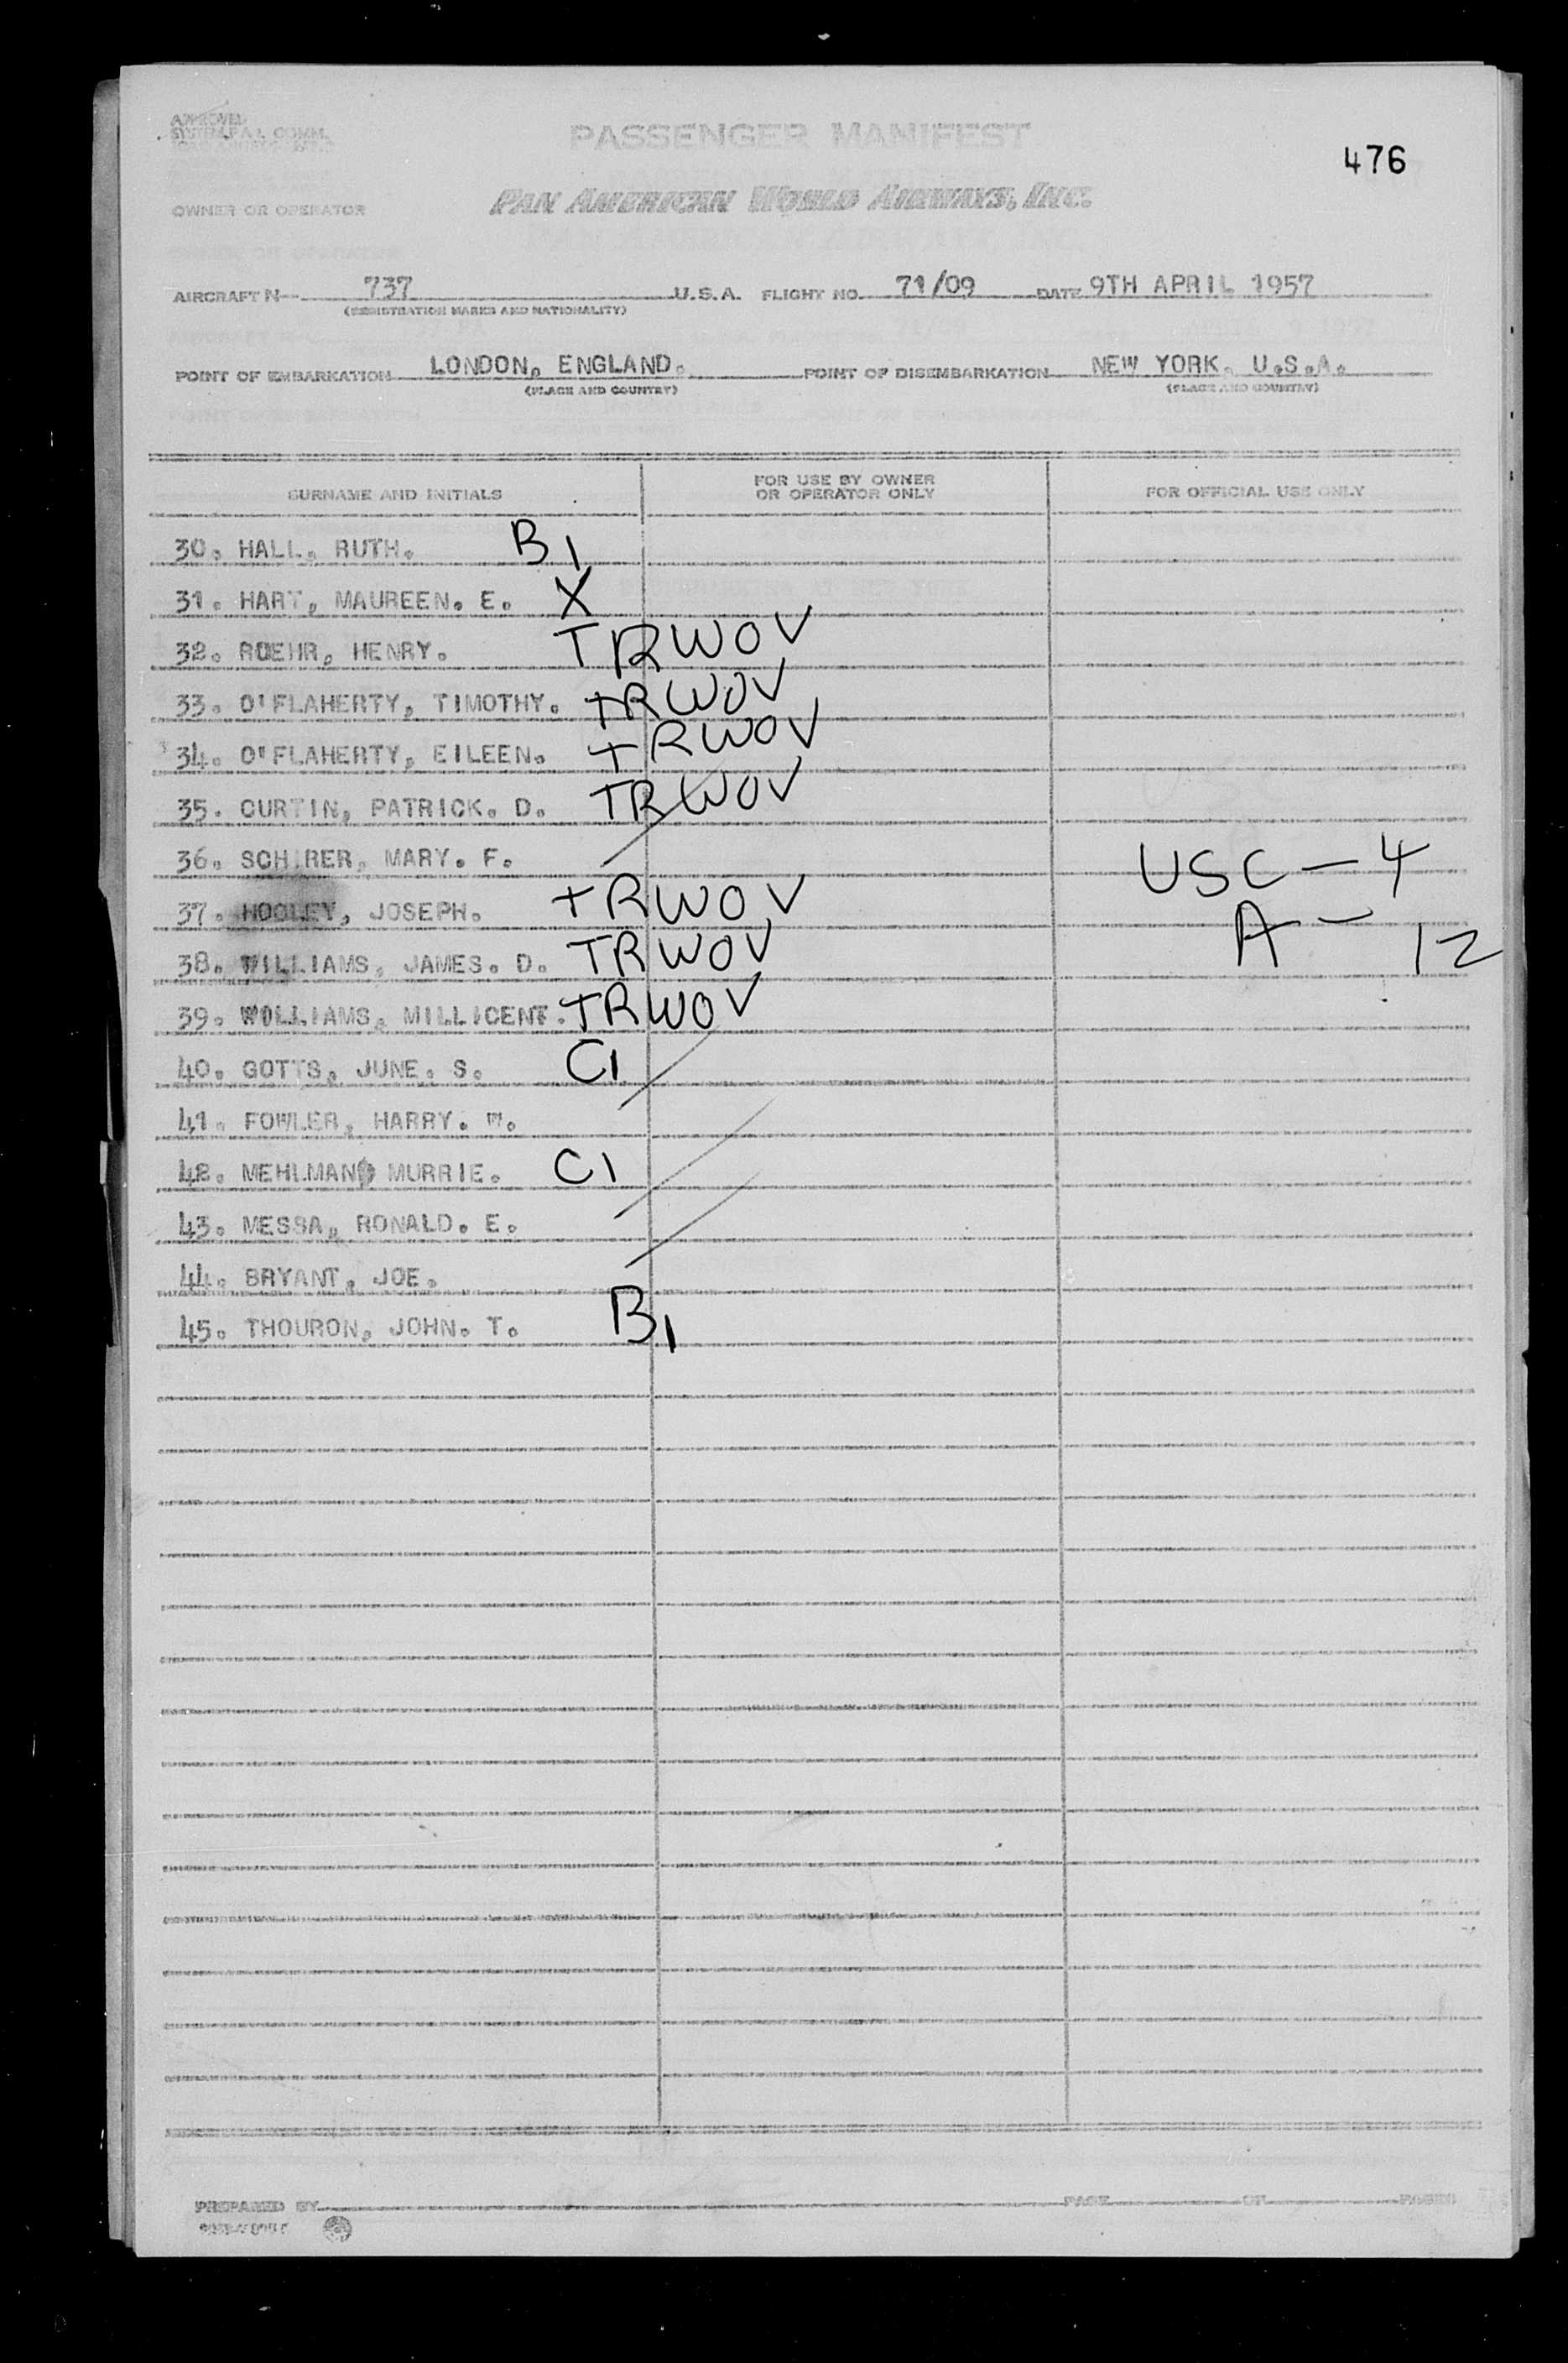 APPROVED
SYSTEM F.A.L. COMM.
PASSENGER MANIFEST
476
PAN AMERICAN WORLD AIRWAYS, INC.
OWNER OR OPERATOR
AIRCRAFT N- 737 U.S.A. FLIGHT NO. 71/09 DATE 9TH APRIL 1957
(REGISTRATION MARKS AND NATIONALITY)
POINT OF EMBARKATION LONDON, ENGLAND. POINT OF DISEMBARKATION NEW YORK. U.S.A.
(PLACE AND COUNTRY) (PLACE AND COUNTRY)
SURNAME AND INITIALS FOR USE BY OWNER OR OPERATOR ONLY FOR OFFICIAL USE ONLY
30. HALL, RUTH. B1
31. HART, MAUREEN. E. X
32. ROEHR, HENRY. TRWOV
33. O'FLAHERTY, TIMOTHY. TRWOV
34. O'FLAHERTY, EILEEN. TRWOV
35. CURTIN, PATRICK. D. TRWOV
36. SCHIRER, MARY. F. USC - 4
37. HOOLEY, JOSEPH. TRWOV A - 12
38. WILLIAMS, JAMES. D. TRWOV
39. WILLIAMS, MILLICENT. TRWOV
40. GOTTS, JUNE. S. C1
41. FOWLER, HARRY. W.
42. MEHLMAN, MURRIE. C1
43. MESSA, RONALD. E.
44. BRYANT, JOE.
45. THOURON, JOHN. T. B1
PREPARED BY PAGE OF PAGES